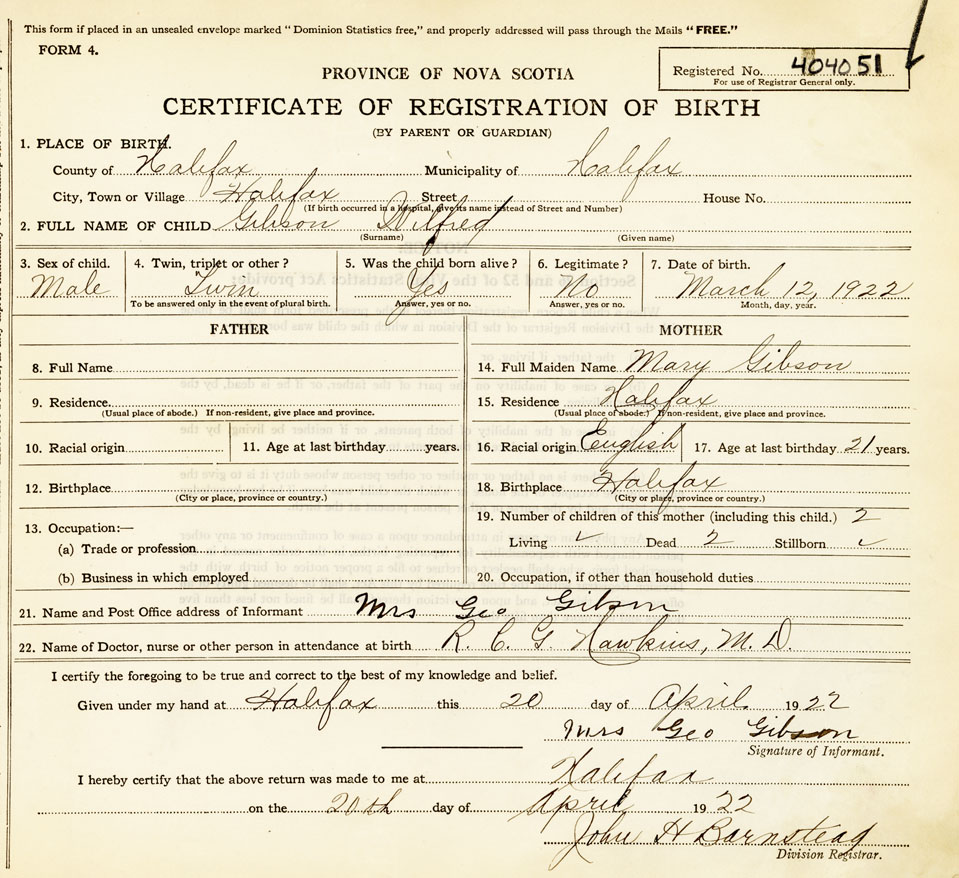 This form if placed in an unsealed envelope marked "Dominion Statistics free," and properly addressed will pass through the Mails "FREE."
FORM 4.
Registered No. 404051
For use of Registrar General only.
PROVINCE OF NOVA SCOTIA
CERTIFICATE OF REGISTRATION OF BIRTH
(BY PARENT OR GUARDIAN)
1. PLACE OF BIRTH.
County of Halifax Municipality of Halifax
City, Town or Village Halifax Street House No.
(If birth occurred in a hospital, give its name instead of Street and Number)
2. FULL NAME OF CHILD Gibson Wilfred
(Surname) (Given name)
3. Sex of child. 4. Twin, triplet or other? 5. Was the child born alive? 6. Legitimate? 7. Date of birth.
Male Twin Yes No March 12, 1922
To be answered only in the event of plural birth. Answer, yes or no. Answer, yes or no. Month, day, year.
FATHER MOTHER
8. Full Name 14. Full Maiden Name Mary Gibson
9. Residence 15. Residence Halifax
(Usual place of abode.) If non-resident, give place and province. (Usual place of abode.) If non-resident, give place and province.
10. Racial origin 11. Age at last birthday years. 16. Racial origin English 17. Age at last birthday 21 years.
12. Birthplace 18. Birthplace Halifax
(City or place, province or country.) (City or place, province or country.)
13. Occupation:— 19. Number of children of this mother (including this child.) 2
(a) Trade or profession Living Dead 2 Stillborn
(b) Business in which employed 20. Occupation, if other than household duties
21. Name and Post Office address of Informant Mrs Geo Gibson
22. Name of Doctor, nurse or other person in attendance at birth R. C. G. Hawkins, M. D.
I certify the foregoing to be true and correct to the best of my knowledge and belief.
Given under my hand at Halifax this 20 day of April 1922
Mrs Geo Gibson
Signature of Informant.
I hereby certify that the above return was made to me at Halifax
on the 20th day of April 1922
John H Barnstead
Division Registrar.